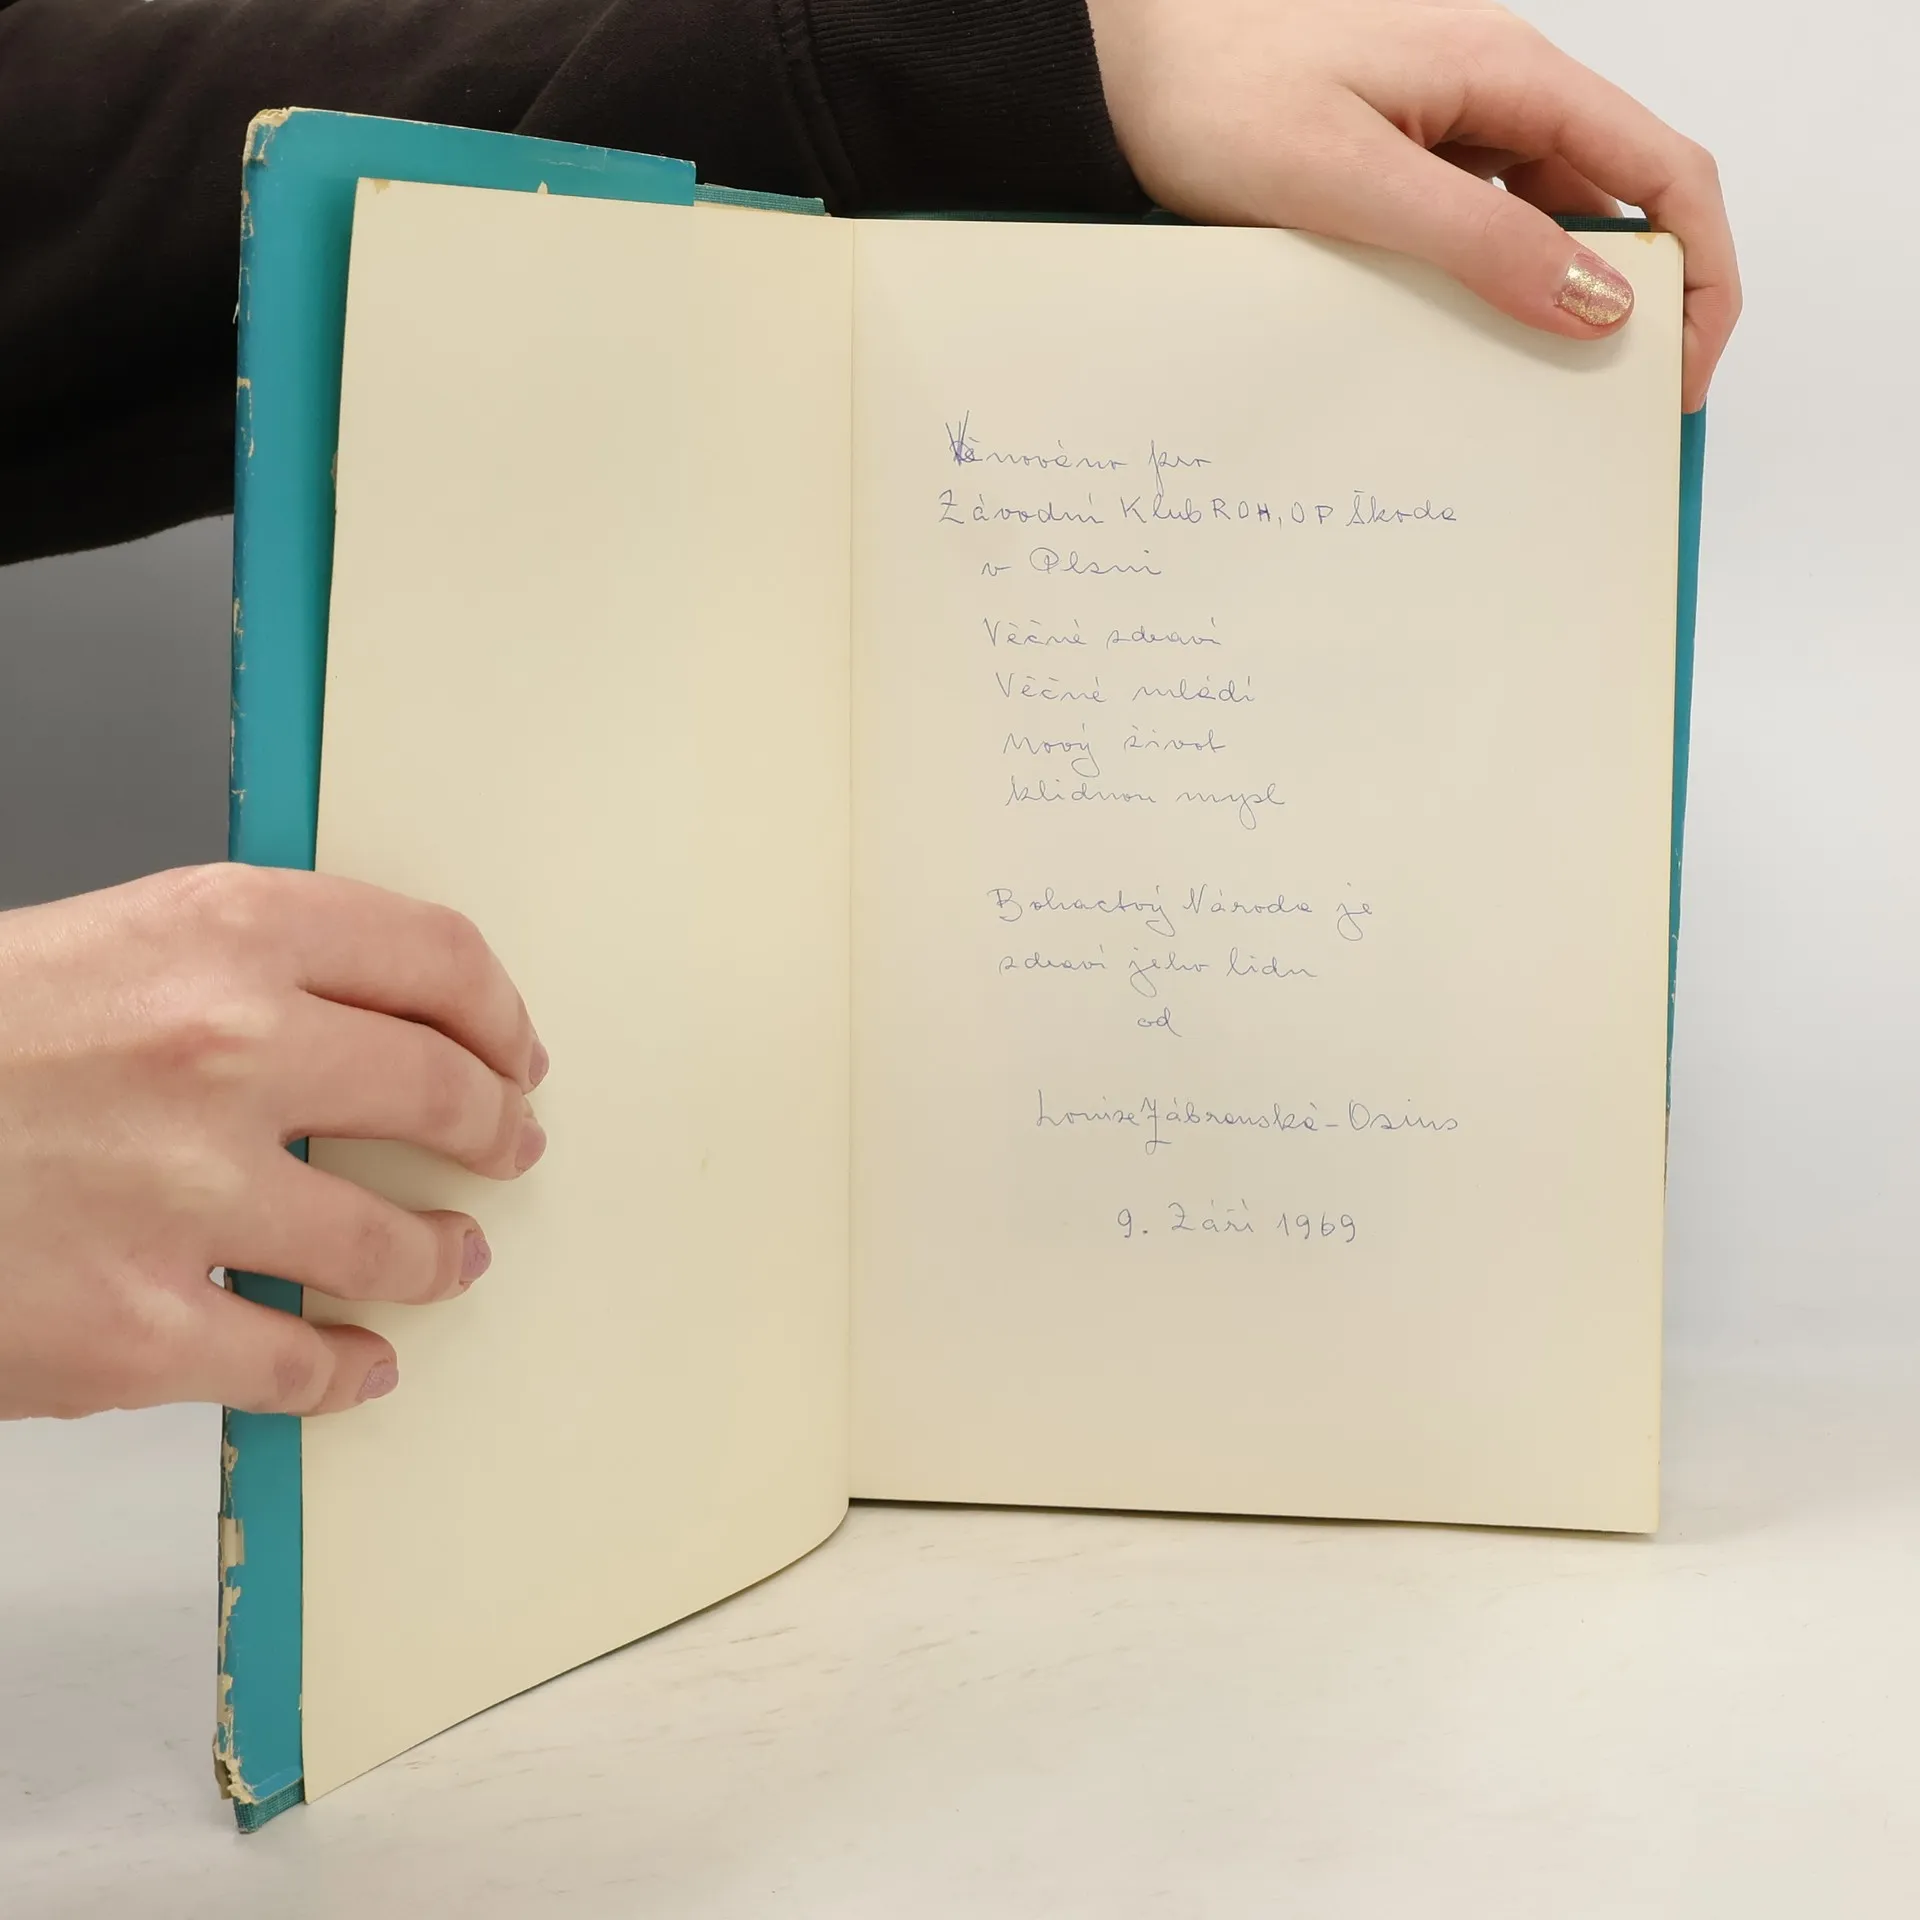 Věnováno pro
Závodní Klub ROH, OP Škoda
v Plsni
Věčné zdraví
Věčné mládí
Nový život
klidnou mysl
Bohactvý Národa je
zdraví jeho lidu
od
Louise Zábranská-Osius
9. Září 1969